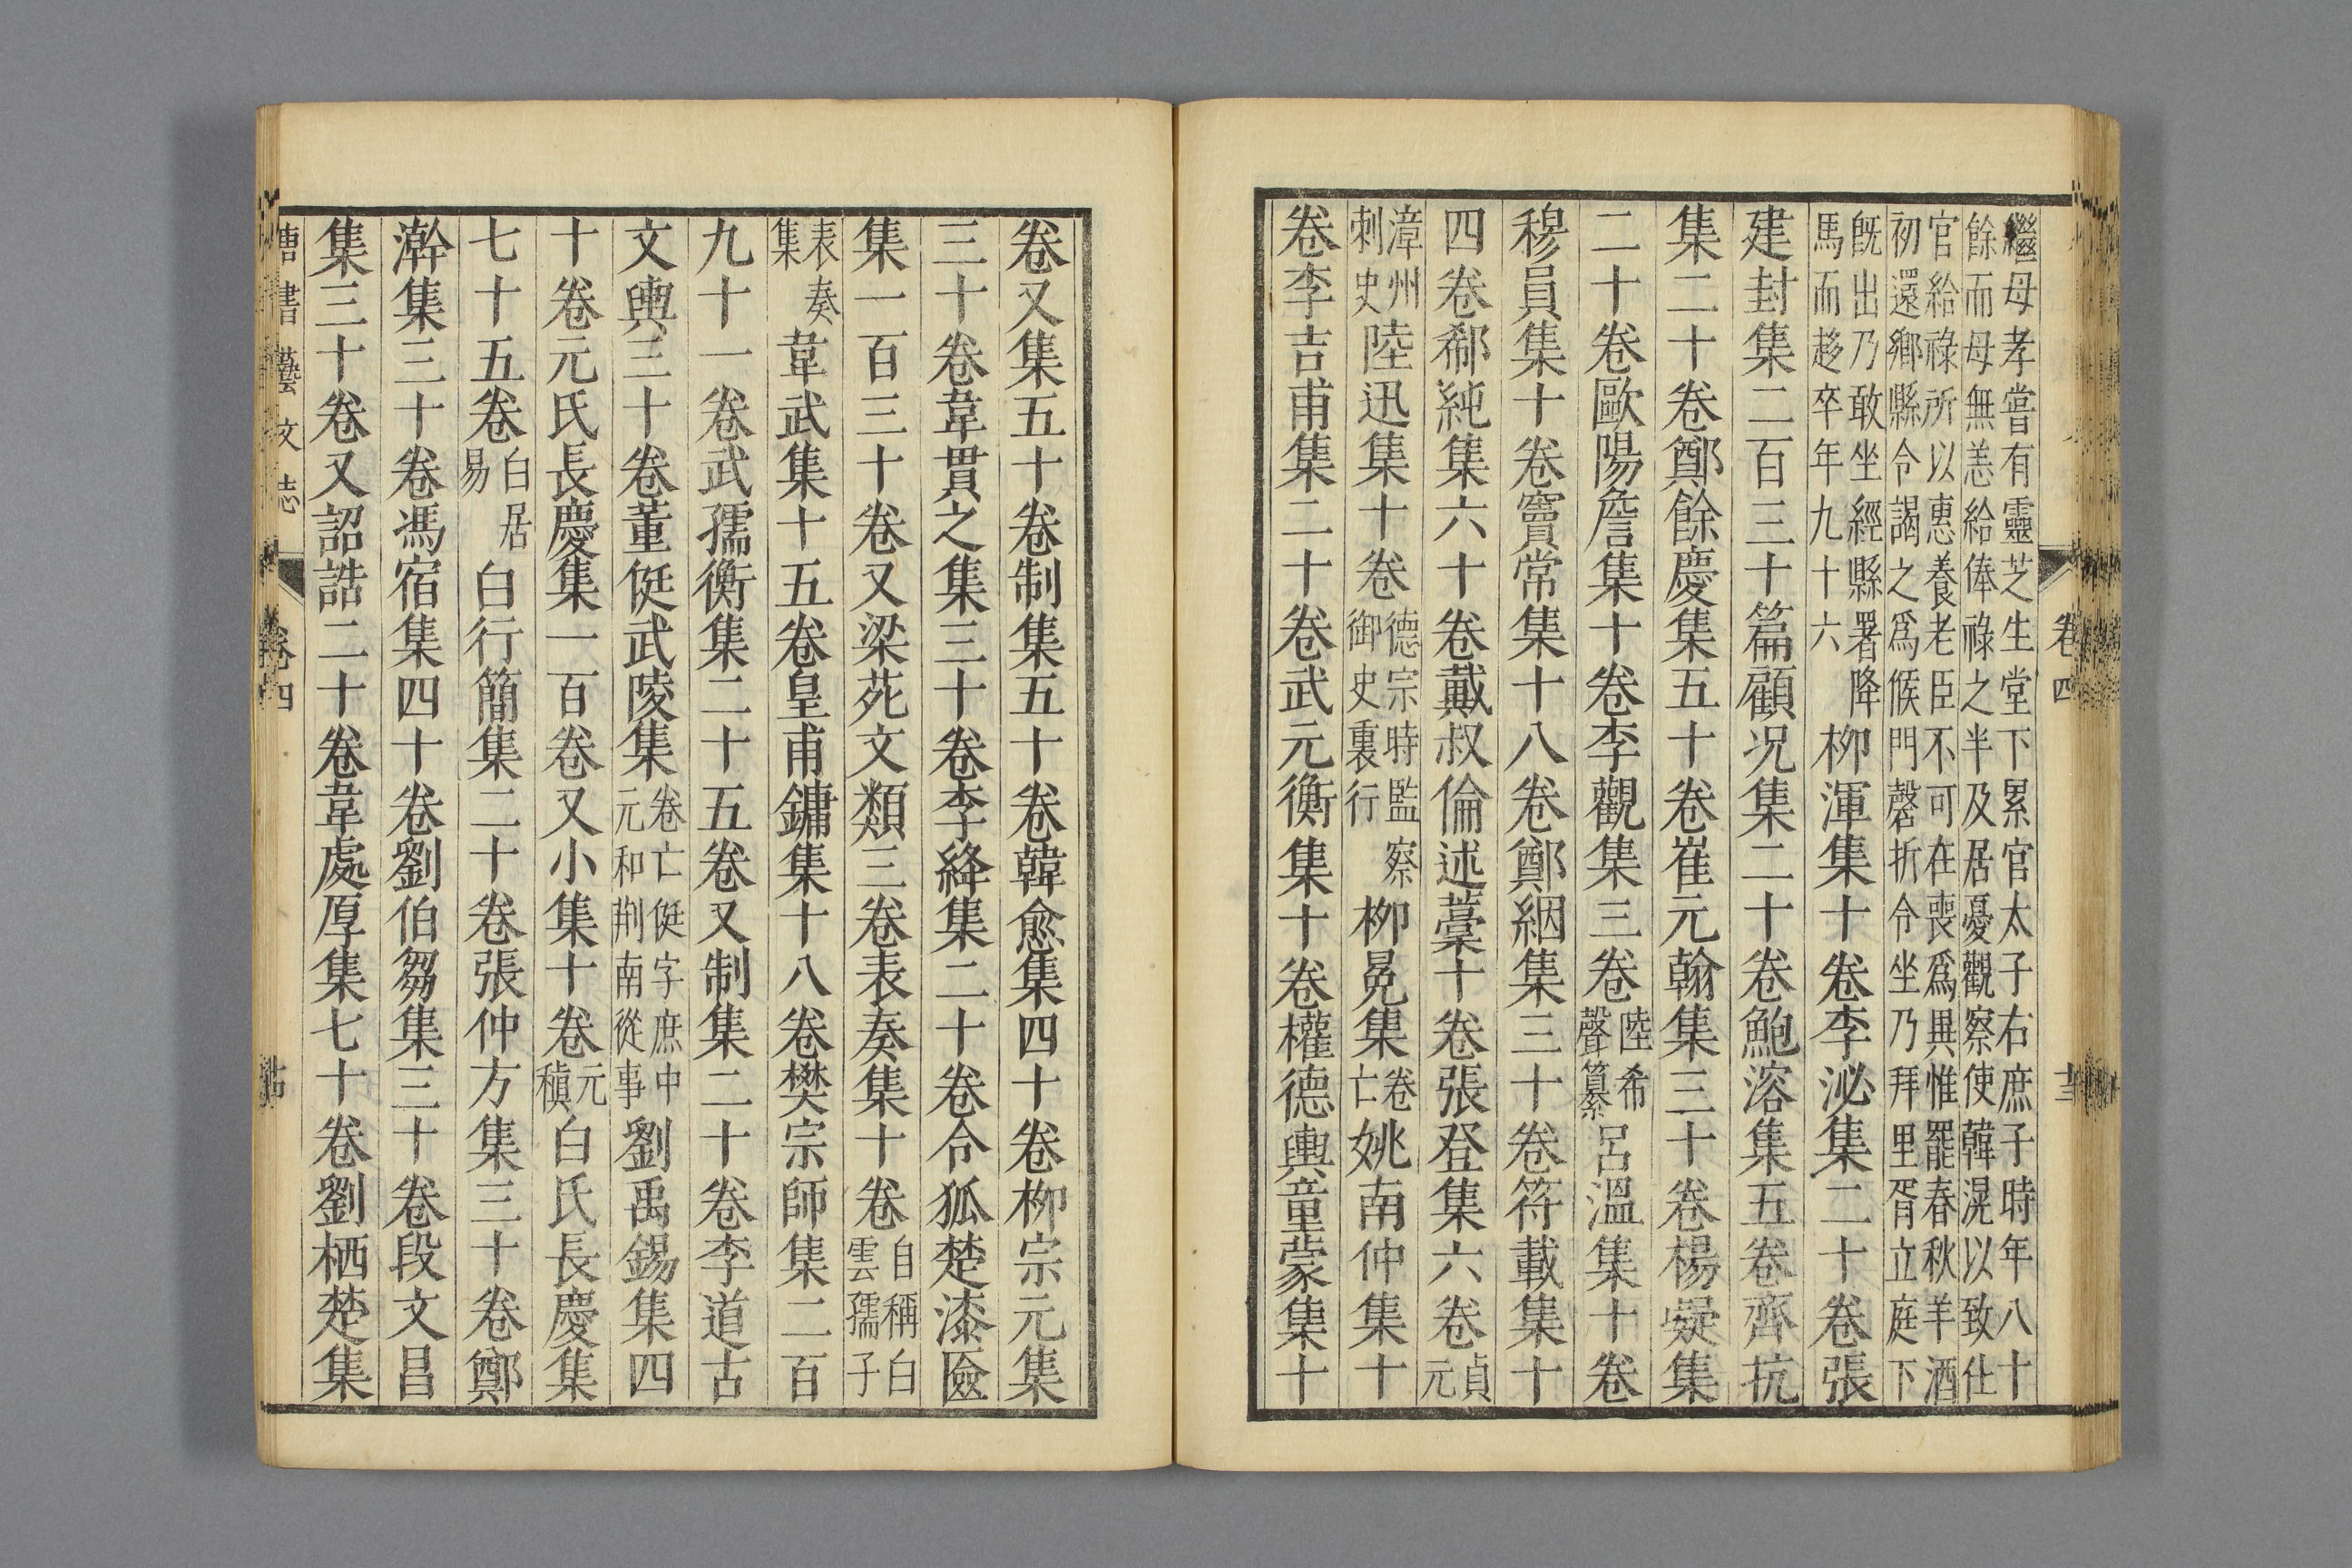 卷四
十三
繼母孝嘗有靈芝生堂下累官太子右庶子時年八十
餘而母無恙給俸祿之半及居憂觀察使韓滉以致仕
官給祿所以惠養老臣不可在喪爲異惟罷春秋羊酒
初還鄉縣令謁之爲候門磬折令坐乃拜里胥立庭下
既出乃敢坐經縣署降馬而趍卒年九十六柳渾集十卷李泌集二十卷張
建封集二百三十篇顧况集二十卷鮑溶集五卷齊抗
集二十卷鄭餘慶集五十卷崔元翰集三十卷楊凝集
二十卷歐陽詹集十卷李觀集三卷陸希聲纂呂溫集十卷
穆員集十卷竇常集十八卷鄭絪集三十卷符載集十
四卷郗純集六十卷戴叔倫述藁十卷張登集六卷貞元
漳州刺史陸迅集十卷德宗時監察御史裏行柳冕集卷亡姚南仲集十
卷李吉甫集二十卷武元衡集十卷權德輿童蒙集十
卷又集五十卷制集五十卷韓愈集四十卷柳宗元集
三十卷韋貫之集三十卷李絳集二十卷令狐楚漆匳
集一百三十卷又梁苑文類三卷表奏集十卷自稱白雲孺子
表奏集韋武集十五卷皇甫鏞集十八卷樊宗師集二百
九十一卷武孺衡集二十五卷又制集二十卷李道古
文輿三十卷董侹武陵集卷亡侹字庶中元和荆南從事劉禹錫集四
十卷元氏長慶集一百卷又小集十卷元稹白氏長慶集
七十五卷白居易白行簡集二十卷張仲方集三十卷鄭
澣集三十卷馮宿集四十卷劉伯芻集三十卷段文昌
集三十卷又詔誥二十卷韋處厚集七十卷劉栖楚集
唐書藝文志
卷四